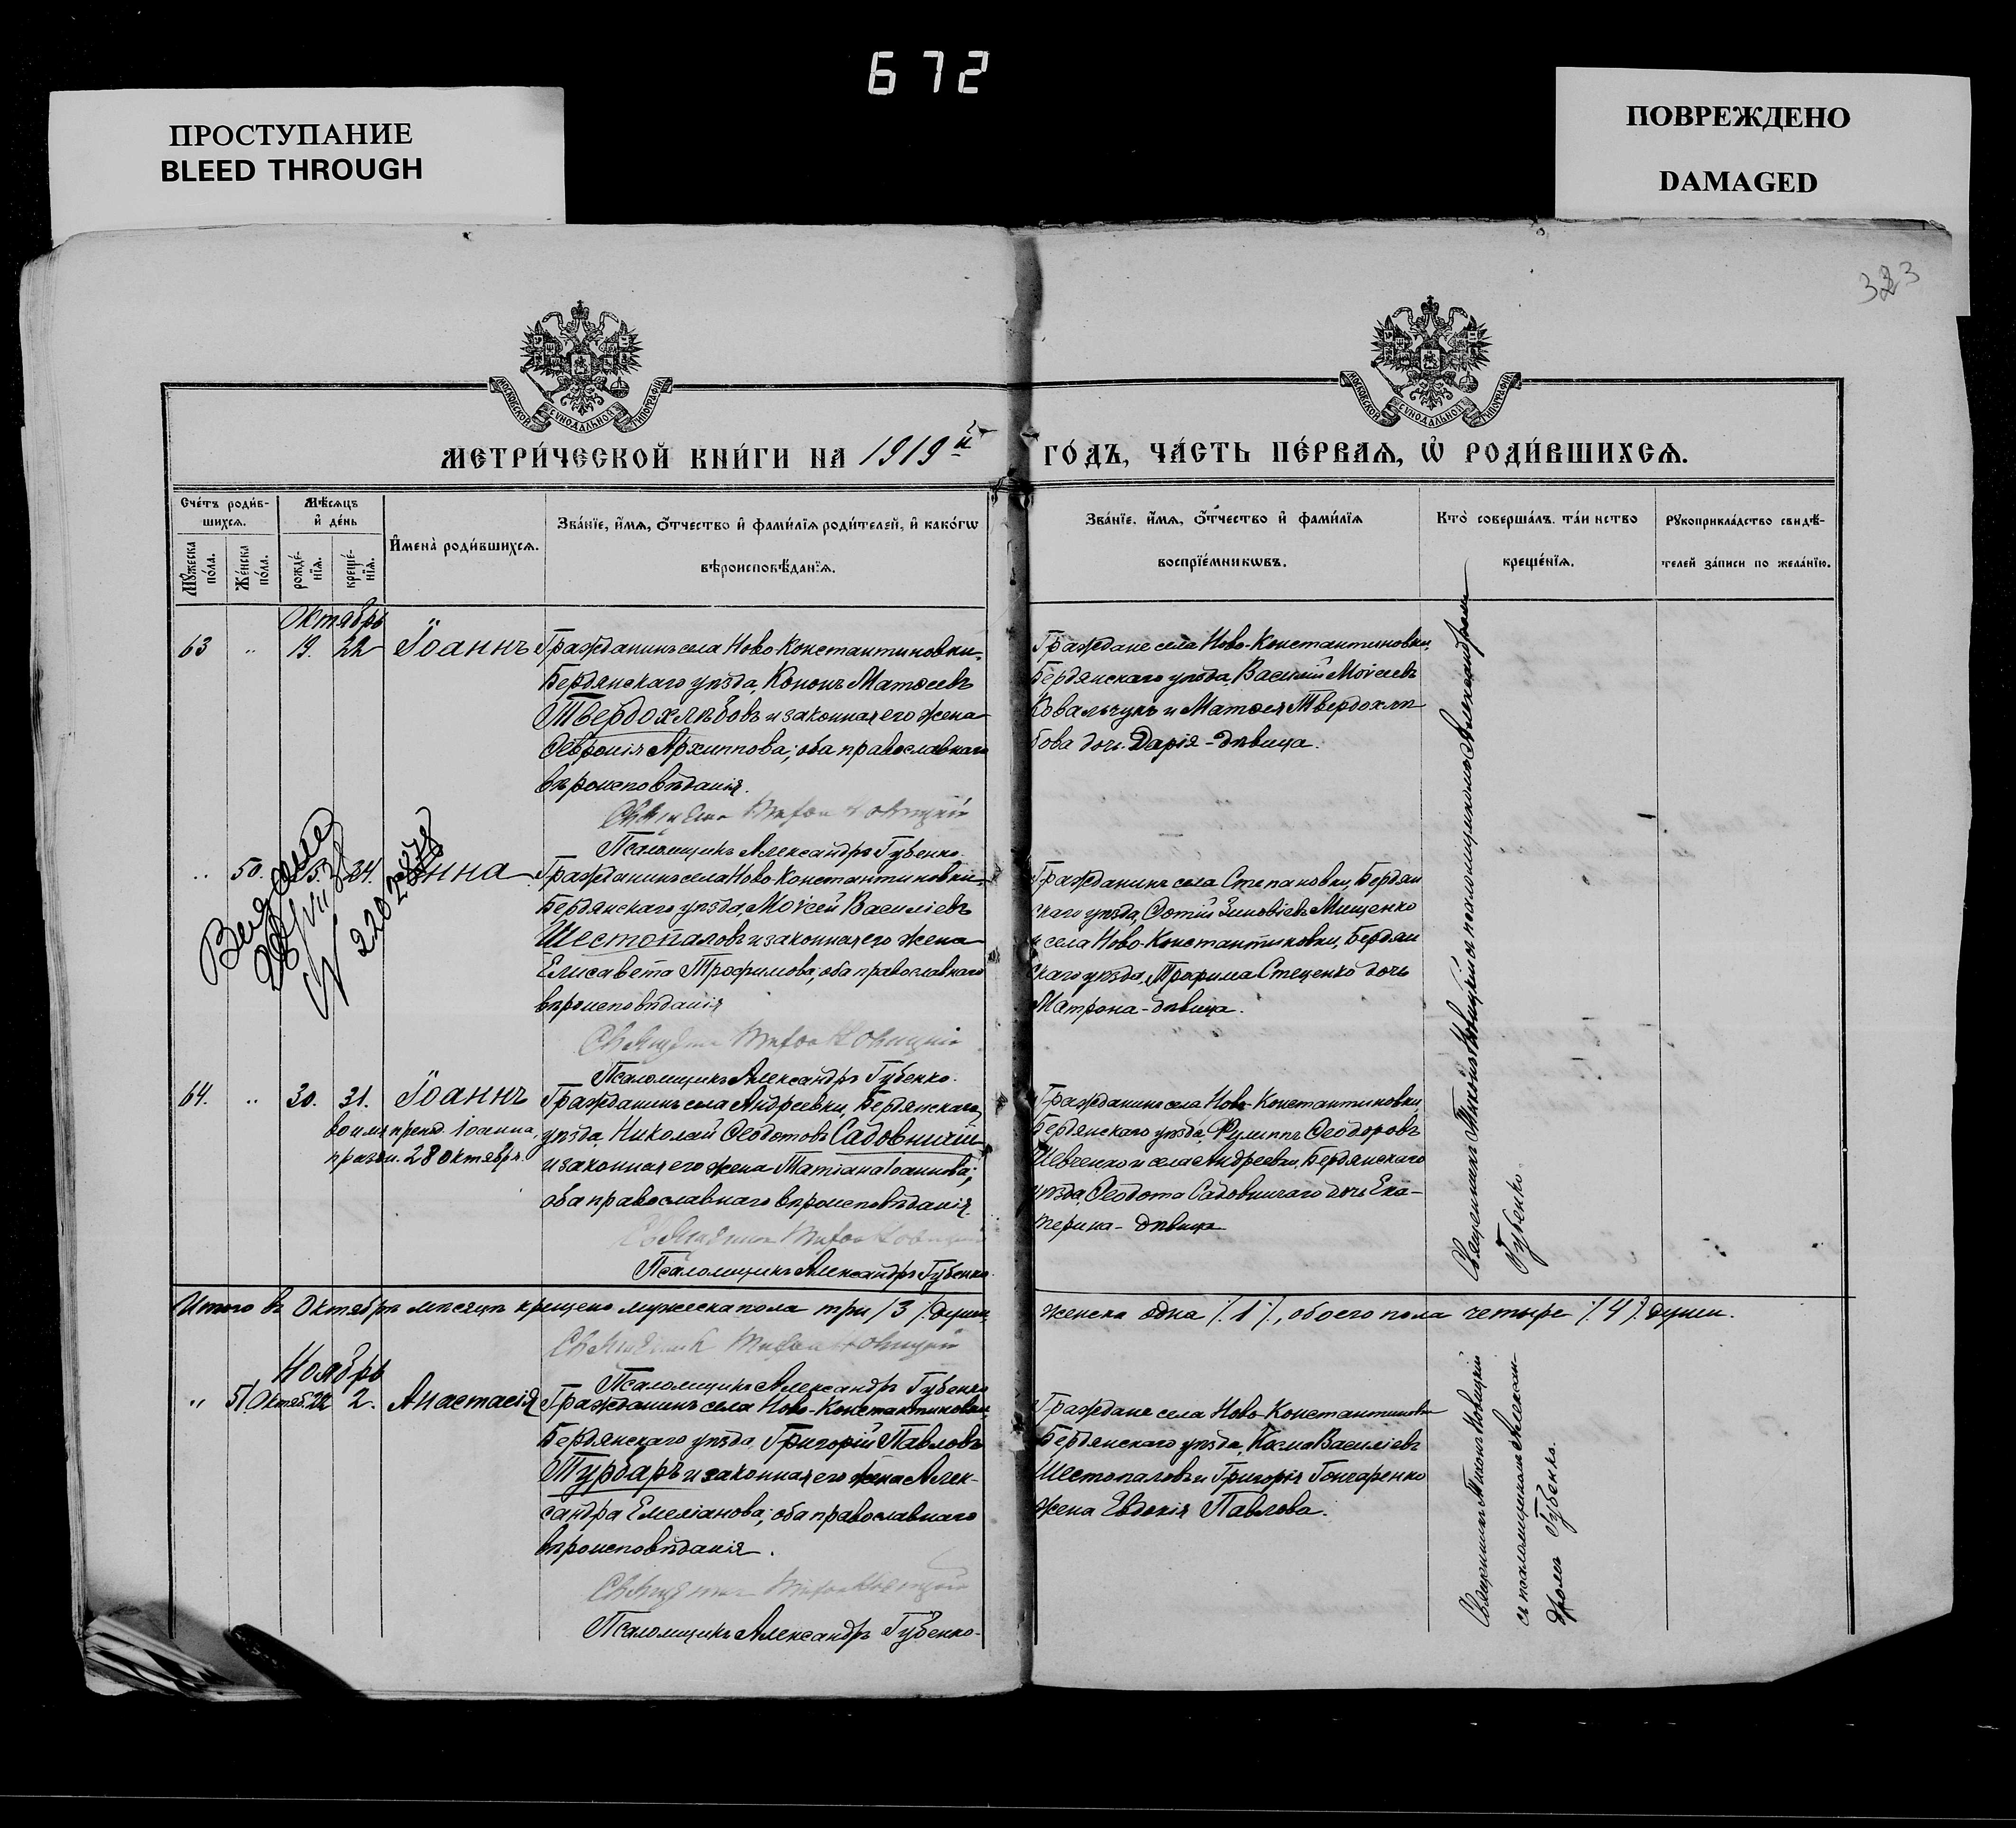 672
ПРОСТУПАНИЕ
BLEED THROUGH
ПОВРЕЖДЕНО
DAMAGED
323
МОСКОВСКОЙ СѴНОДАЛЬНОЙ ТИПОГРАФІИ
МОСКОВСКОЙ СѴНОДАЛЬНОЙ ТИПОГРАФІИ
МЕТРИ́ЧЕСКОЙ КНИ́ГИ НА 1919й
ГО́ДЪ, ЧА́СТЬ ПЕ́РВАѦ, Ѡ҆ РОДИ́ВШИХСѦ.
Сче́тъ роди́в-
шихсѧ.
Мꙋ́жеска по́ла.
Же́нска по́ла.
Мѣ́сѧцъ
и҆ де́нь
рожде́-
нїѧ.
креще́-
нїѧ.
И҆мена̀ роди́вшихсѧ.
Зва́нїе, и҆́мѧ, ѻ҆́тчество и҆ фами́лїѧ роди́телей, и҆ како́гѡ
вѣроисповѣ́данїѧ.
Зва́нїе, и҆́мѧ, ѻ҆́тчество и҆ фами́лїѧ
воспрїе́мникѡвъ.
Кто̀ соверша́лъ та́инство
креще́нїѧ.
Рꙋкоприкла́дство свидѣ́-
телей за́писи по жела́нїю.
Октябрь
63 " 19. 22 Іоаннъ
Гражданинъ села Ново-Константиновки,
Бердянскаго уѣзда, Кононъ Матѳеевъ
Твердохлѣбовъ и законная его жена
Февронія Архиппова; оба православнаго
вѣроисповѣданія.
Псаломщикъ Александръ Губенко.
Граждане села Ново-Константиновки,
Бердянскаго уѣзда, Василій Моѵсеевъ
Ковальчукъ и Матѳея Твердохлѣ-
бова дочь Дарія-дѣвица.
" 50. 24. Анна
Гражданинъ села Ново-Константиновки,
Бердянскаго уѣзда, Моѵсей Василіевъ
Шестопаловъ и законная его жена
Елисавета Трофимова; оба православнаго
вѣроисповѣданія
Псаломщикъ Александръ Губенко.
Гражданинъ села Степановки, Бердян
скаго уѣзда, Фотій Зиновіевъ Мищенко
и села Ново-Константиновки, Бердян
скаго уѣзда, Трофима Стеценко дочь
Матрона-дѣвица.
64. " 30. 31. Іоаннъ
во имя препод. Іоанна,
праздн. 28 октября.
Гражданинъ села Андреевки, Бердянскаго
уѣзда, Николай Ѳеодотовъ Садовничій
и законная его жена Татіана Іоаннова;
оба православнаго вѣроисповѣданія.
Псаломщикъ Александръ Губенко
Гражданинъ села Ново-Константиновки,
Бердянскаго уѣзда, Филиппъ Ѳеодоровъ
Шевченко и села Андреевки, Бердянскаго
уѣзда, Ѳеодота Садовничаго дочь Ека-
терина-дѣвица
Священникъ Тихонъ Новицкій съ псаломщикомъ Александромъ
Губенко.
Итого въ Октябрѣ мѣсяцѣ крещено мужеска пола три /3/ души,
женска одна /1/, обоего пола четыре /4/ души.
Псаломщикъ Александръ Губенко
Ноябрь
" 51. Октяб. 22 2. Анастасія
Гражданинъ села Ново-Константиновки,
Бердянскаго уѣзда, Григорій Павловъ
Турбаръ и законная его жена Алек-
сандра Емеліанова; оба православнаго
вѣроисповѣданія.
Псаломщикъ Александръ Губенко.
Граждане села Ново-Константиновки
Бердянскаго уѣзда, Косма Василіевъ
Шестопаловъ и Григорія Гончаренко
жена Евдокія Павлова.
Священникъ Тихонъ Новицкій
съ псаломщикомъ Алексан-
дромъ Губенко.